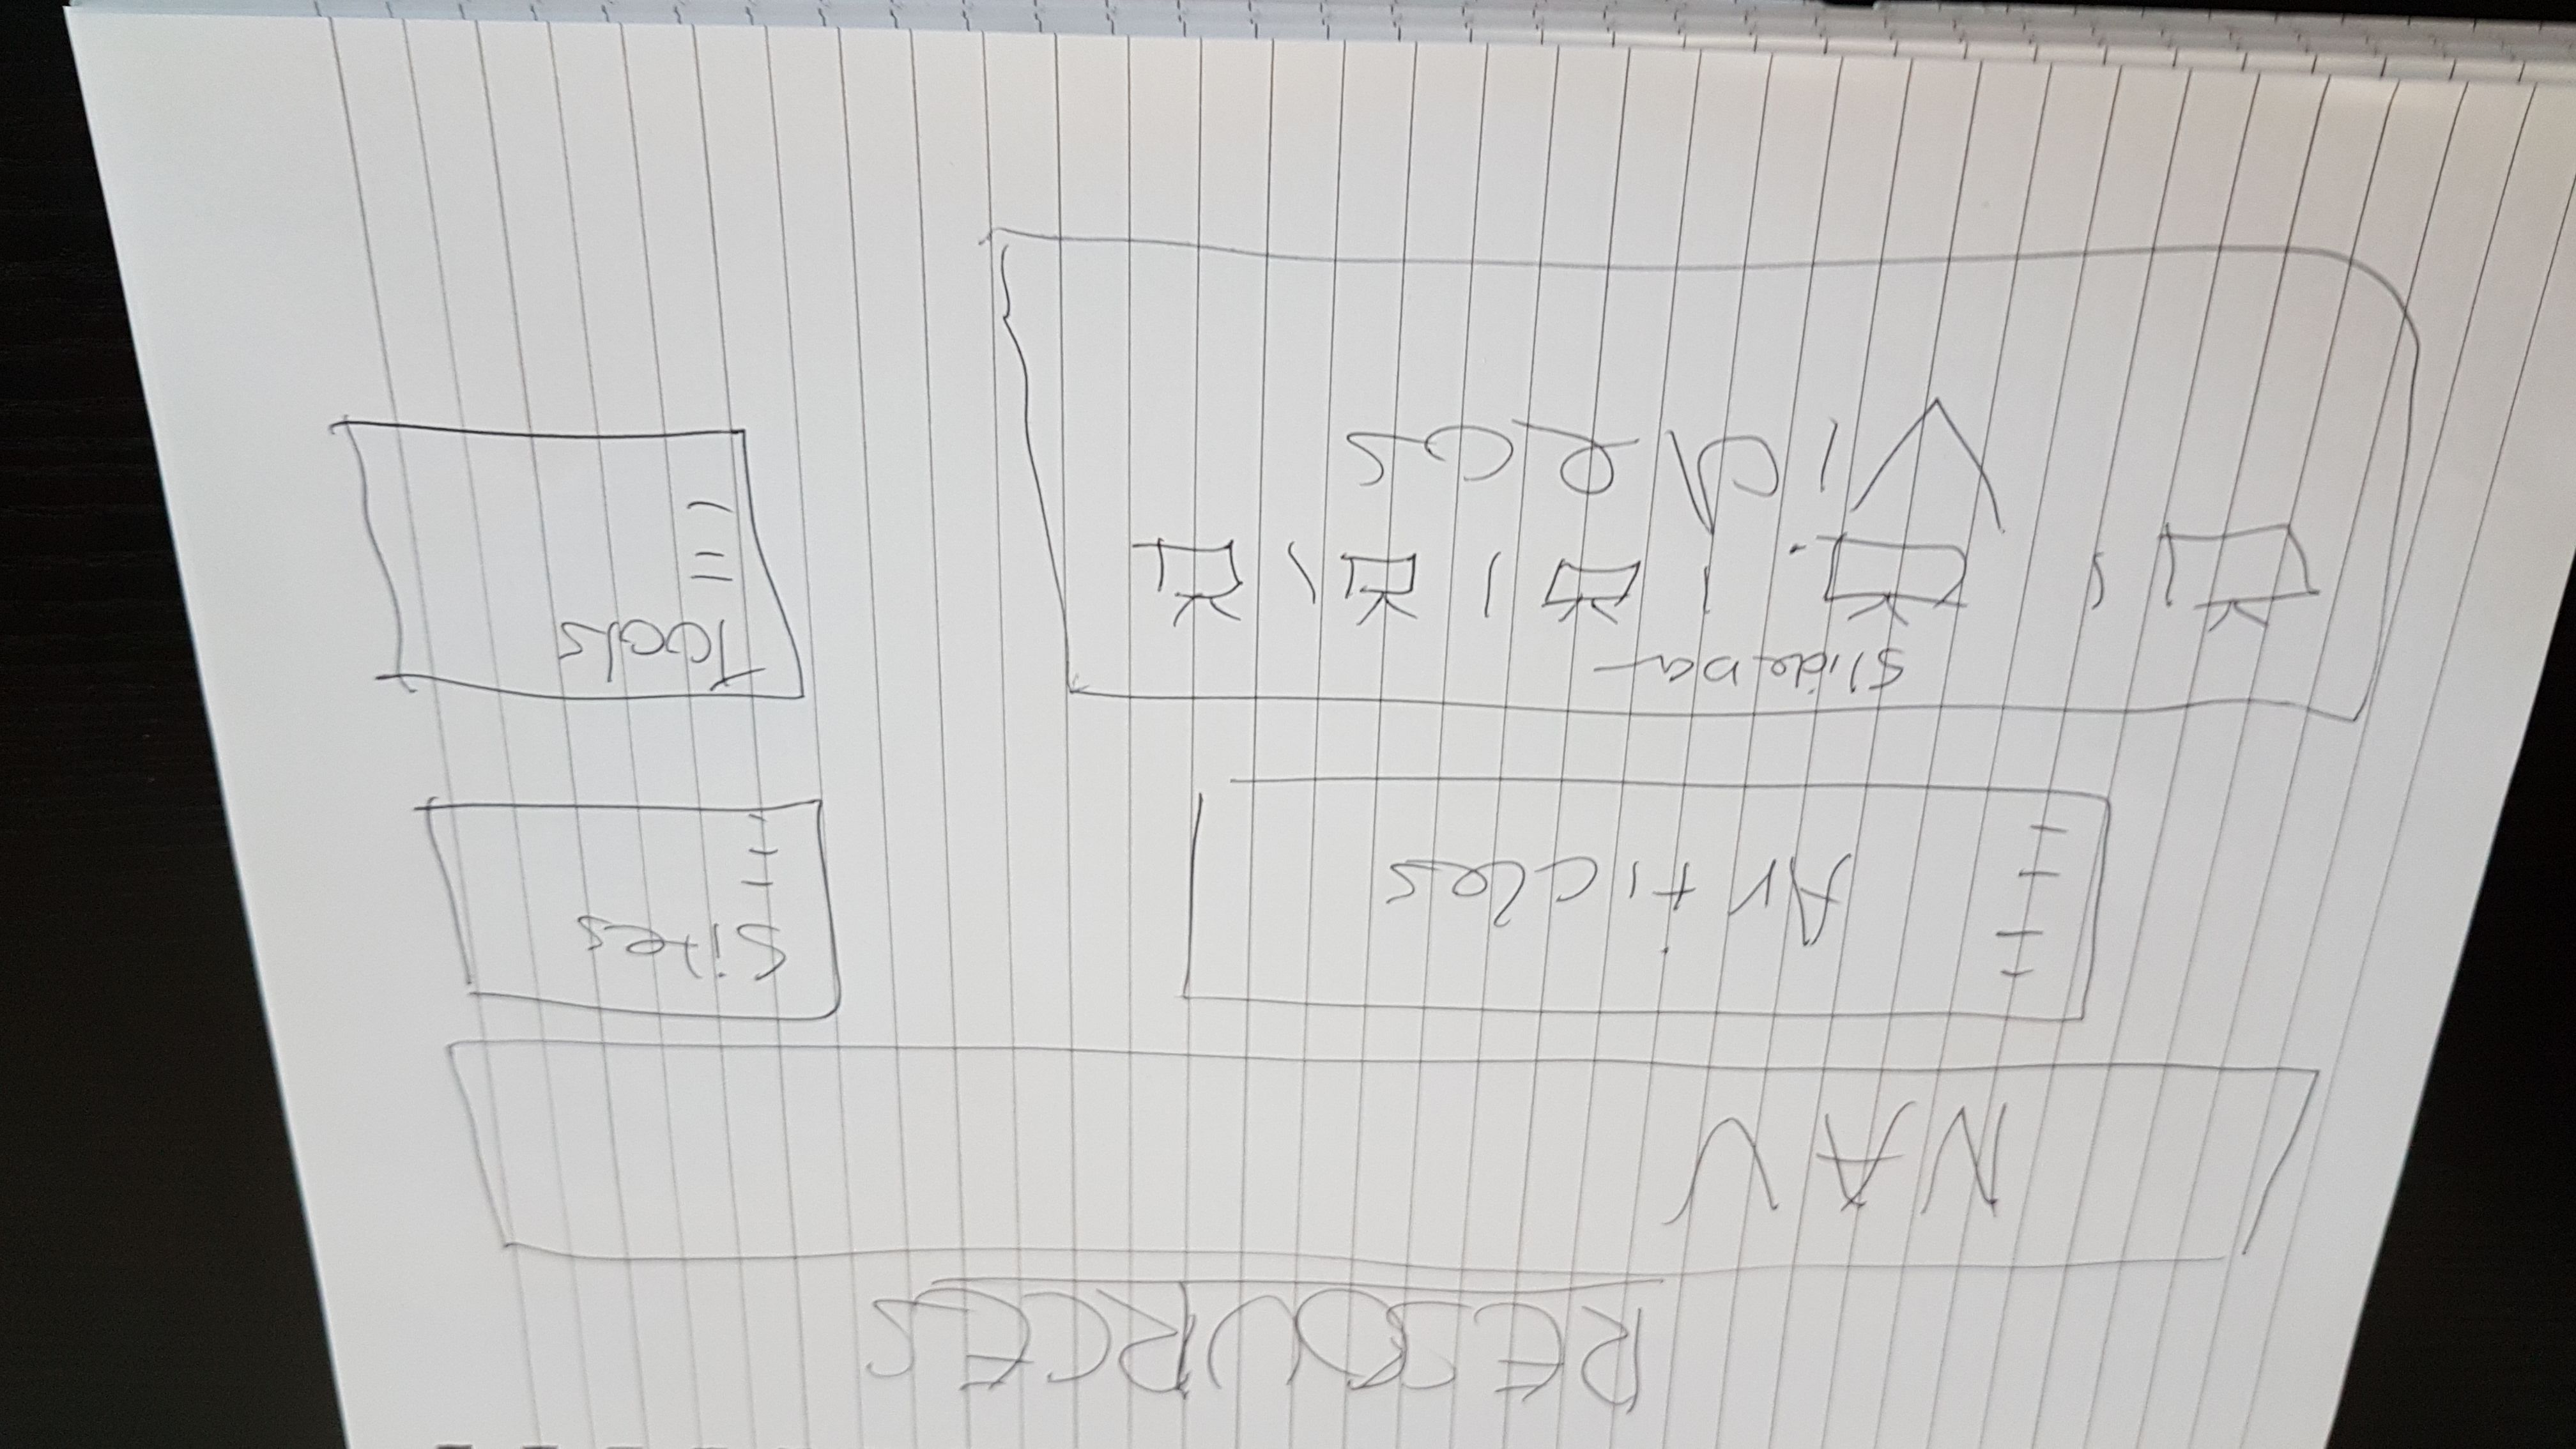 RESOURCES
NAV
Articles
Sites
Slidebar
Videos
Tools